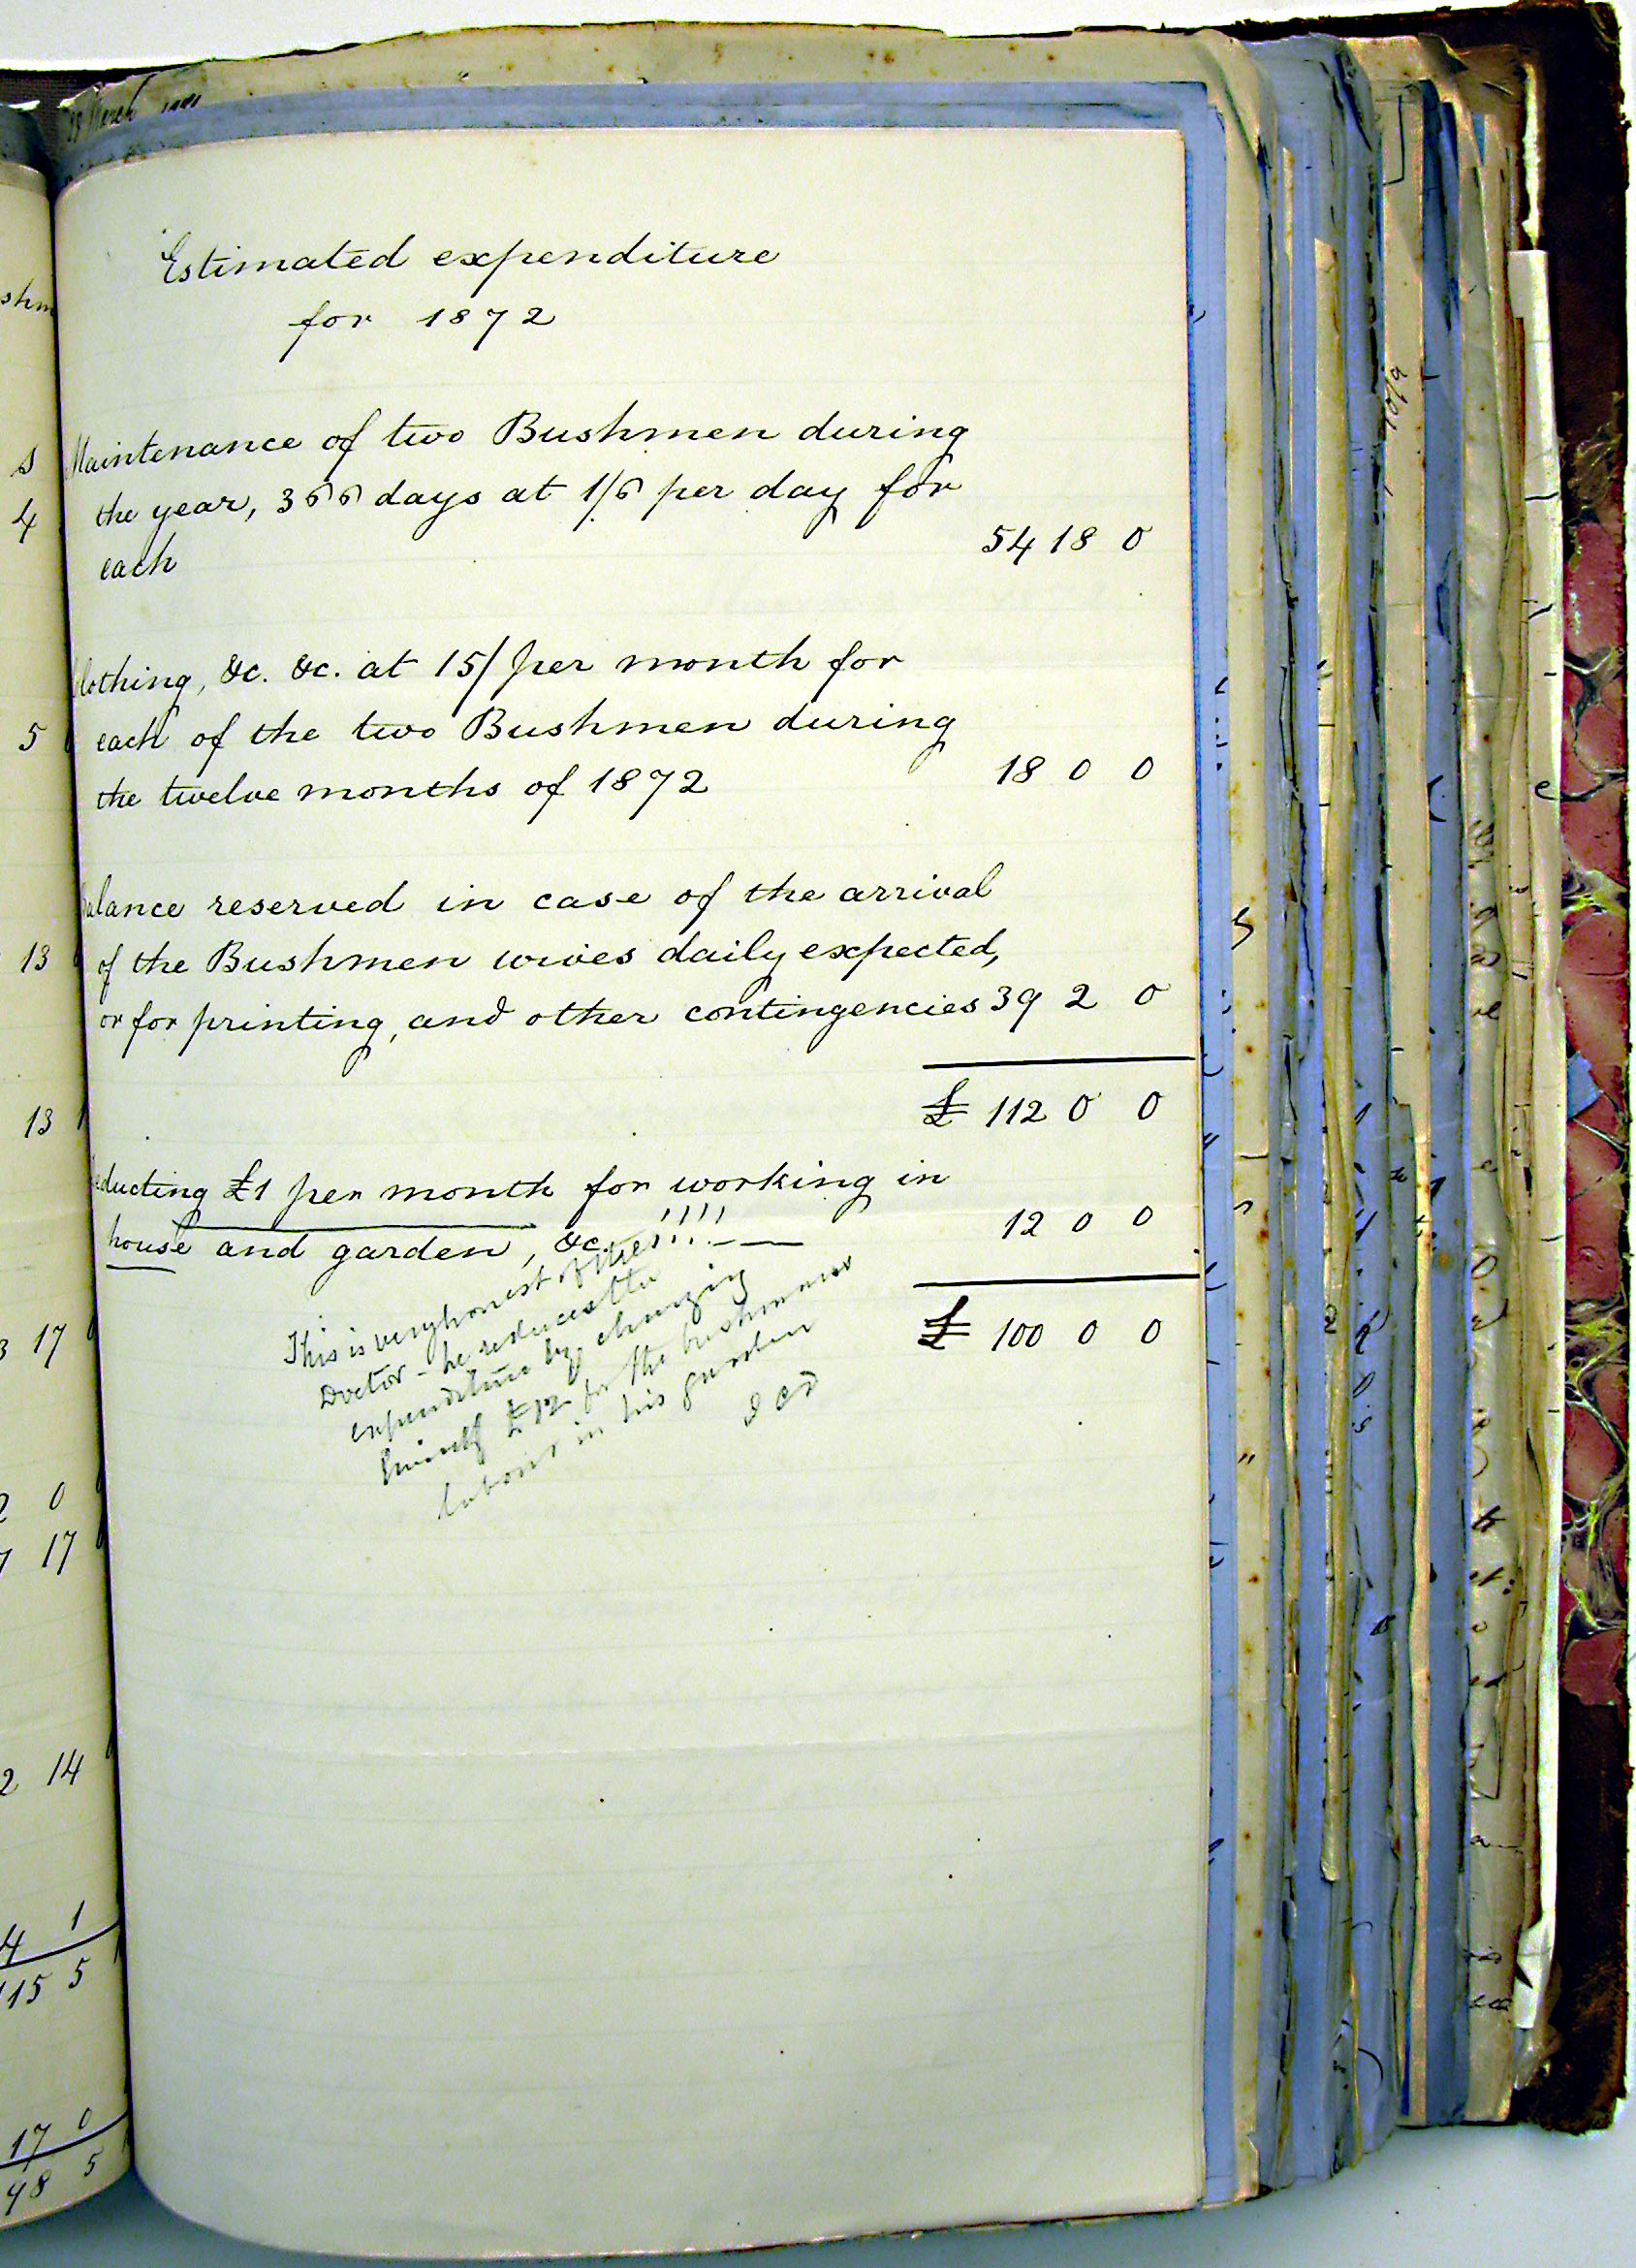 Estimated expenditure
for 1872
Maintenance of two Bushmen during
the year, 366 days at 1/6 per day for
each 54 18 0
Clothing, &c. &c. at 15/ per month for
each of the two Bushmen during
the twelve months of 1872 18 0 0
Balance reserved in case of the arrival
of the Bushmen wives daily expected,
or for printing, and other contingencies 39 2 0
£ 112 0 0
Deducting £1 per month for working in
house and garden, &c. 12 0 0
£ 100 0 0
This is very honest of the!!!!
Doctor - he reduces the
expenditure by charging
himself £12 for the bushmens
labours in his garden